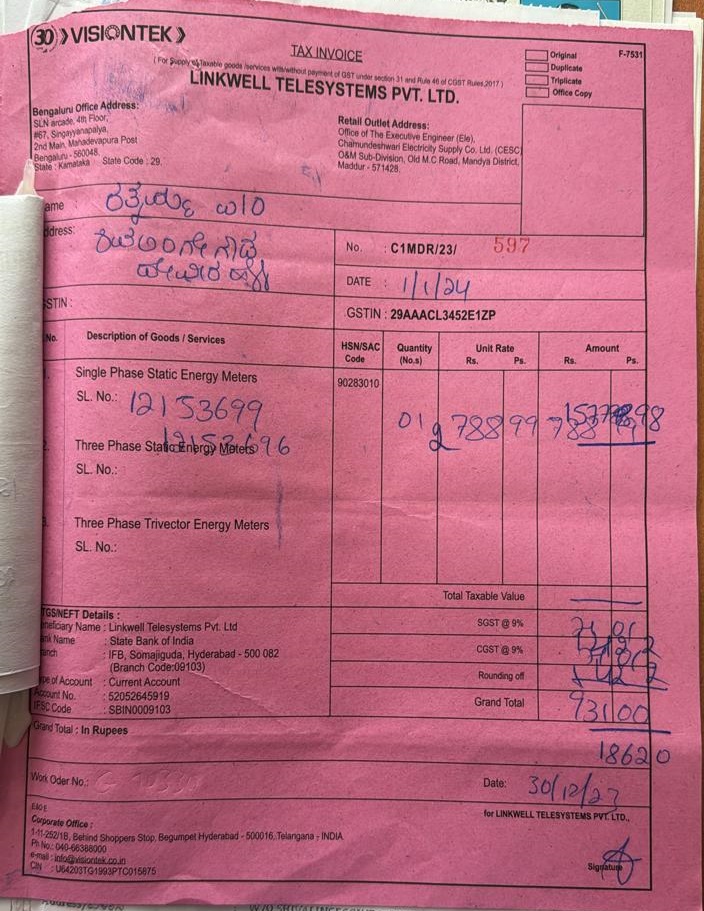 30 VISIONTEK
TAX INVOICE
( For Supply of Taxable goods /services with/without payment of GST under section 31 and Rule 46 of CGST Rules,2017 )
LINKWELL TELESYSTEMS PVT. LTD.
Original
Duplicate
Triplicate
Office Copy
F-7531
Bengaluru Office Address:
SLN arcade, 4th Floor,
#67, Singayyanapalya,
2nd Main, Mahadevapura Post
Bengaluru - 560048.
State : Karnataka State Code : 29.
Retail Outlet Address:
Office of The Executive Engineer (Ele),
Chamundeshwari Electricity Supply Co. Ltd. (CESC)
O&M Sub-Division, Old M.C Road, Mandya District,
Maddur - 571428.
ame
ddress:
No. : C1MDR/23/ 597
DATE : 1/1/24
STIN :
GSTIN : 29AAACL3452E1ZP
No. Description of Goods / Services HSN/SAC Code Quantity (No.s) Unit Rate Rs. Ps. Amount Rs. Ps.
Single Phase Static Energy Meters 90283010
SL. No.: 12153699
01 2 788 99
12153696
2. Three Phase Static Energy Meters
SL. No.:
3. Three Phase Trivector Energy Meters
SL. No.:
Total Taxable Value
TGS/NEFT Details :
eneficiary Name : Linkwell Telesystems Pvt. Ltd
ank Name : State Bank of India
anch : IFB, Somajiguda, Hyderabad - 500 082
(Branch Code:09103)
ype of Account : Current Account
Account No. : 52052645919
IFSC Code : SBIN0009103
SGST @ 9%
CGST @ 9%
Rounding off
Grand Total 931 00
Grand Total : In Rupees
1862 0
Work Oder No.:
Date: 30/12/23
E.&O.E
for LINKWELL TELESYSTEMS PVT. LTD.,
Corporate Office :
1-11-252/1B, Behind Shoppers Stop, Begumpet Hyderabad - 500016, Telangana - INDIA
Ph No.: 040-66388000
e-mail : info@visiontek.co.in
CIN : U64203TG1993PTC015875
Signature